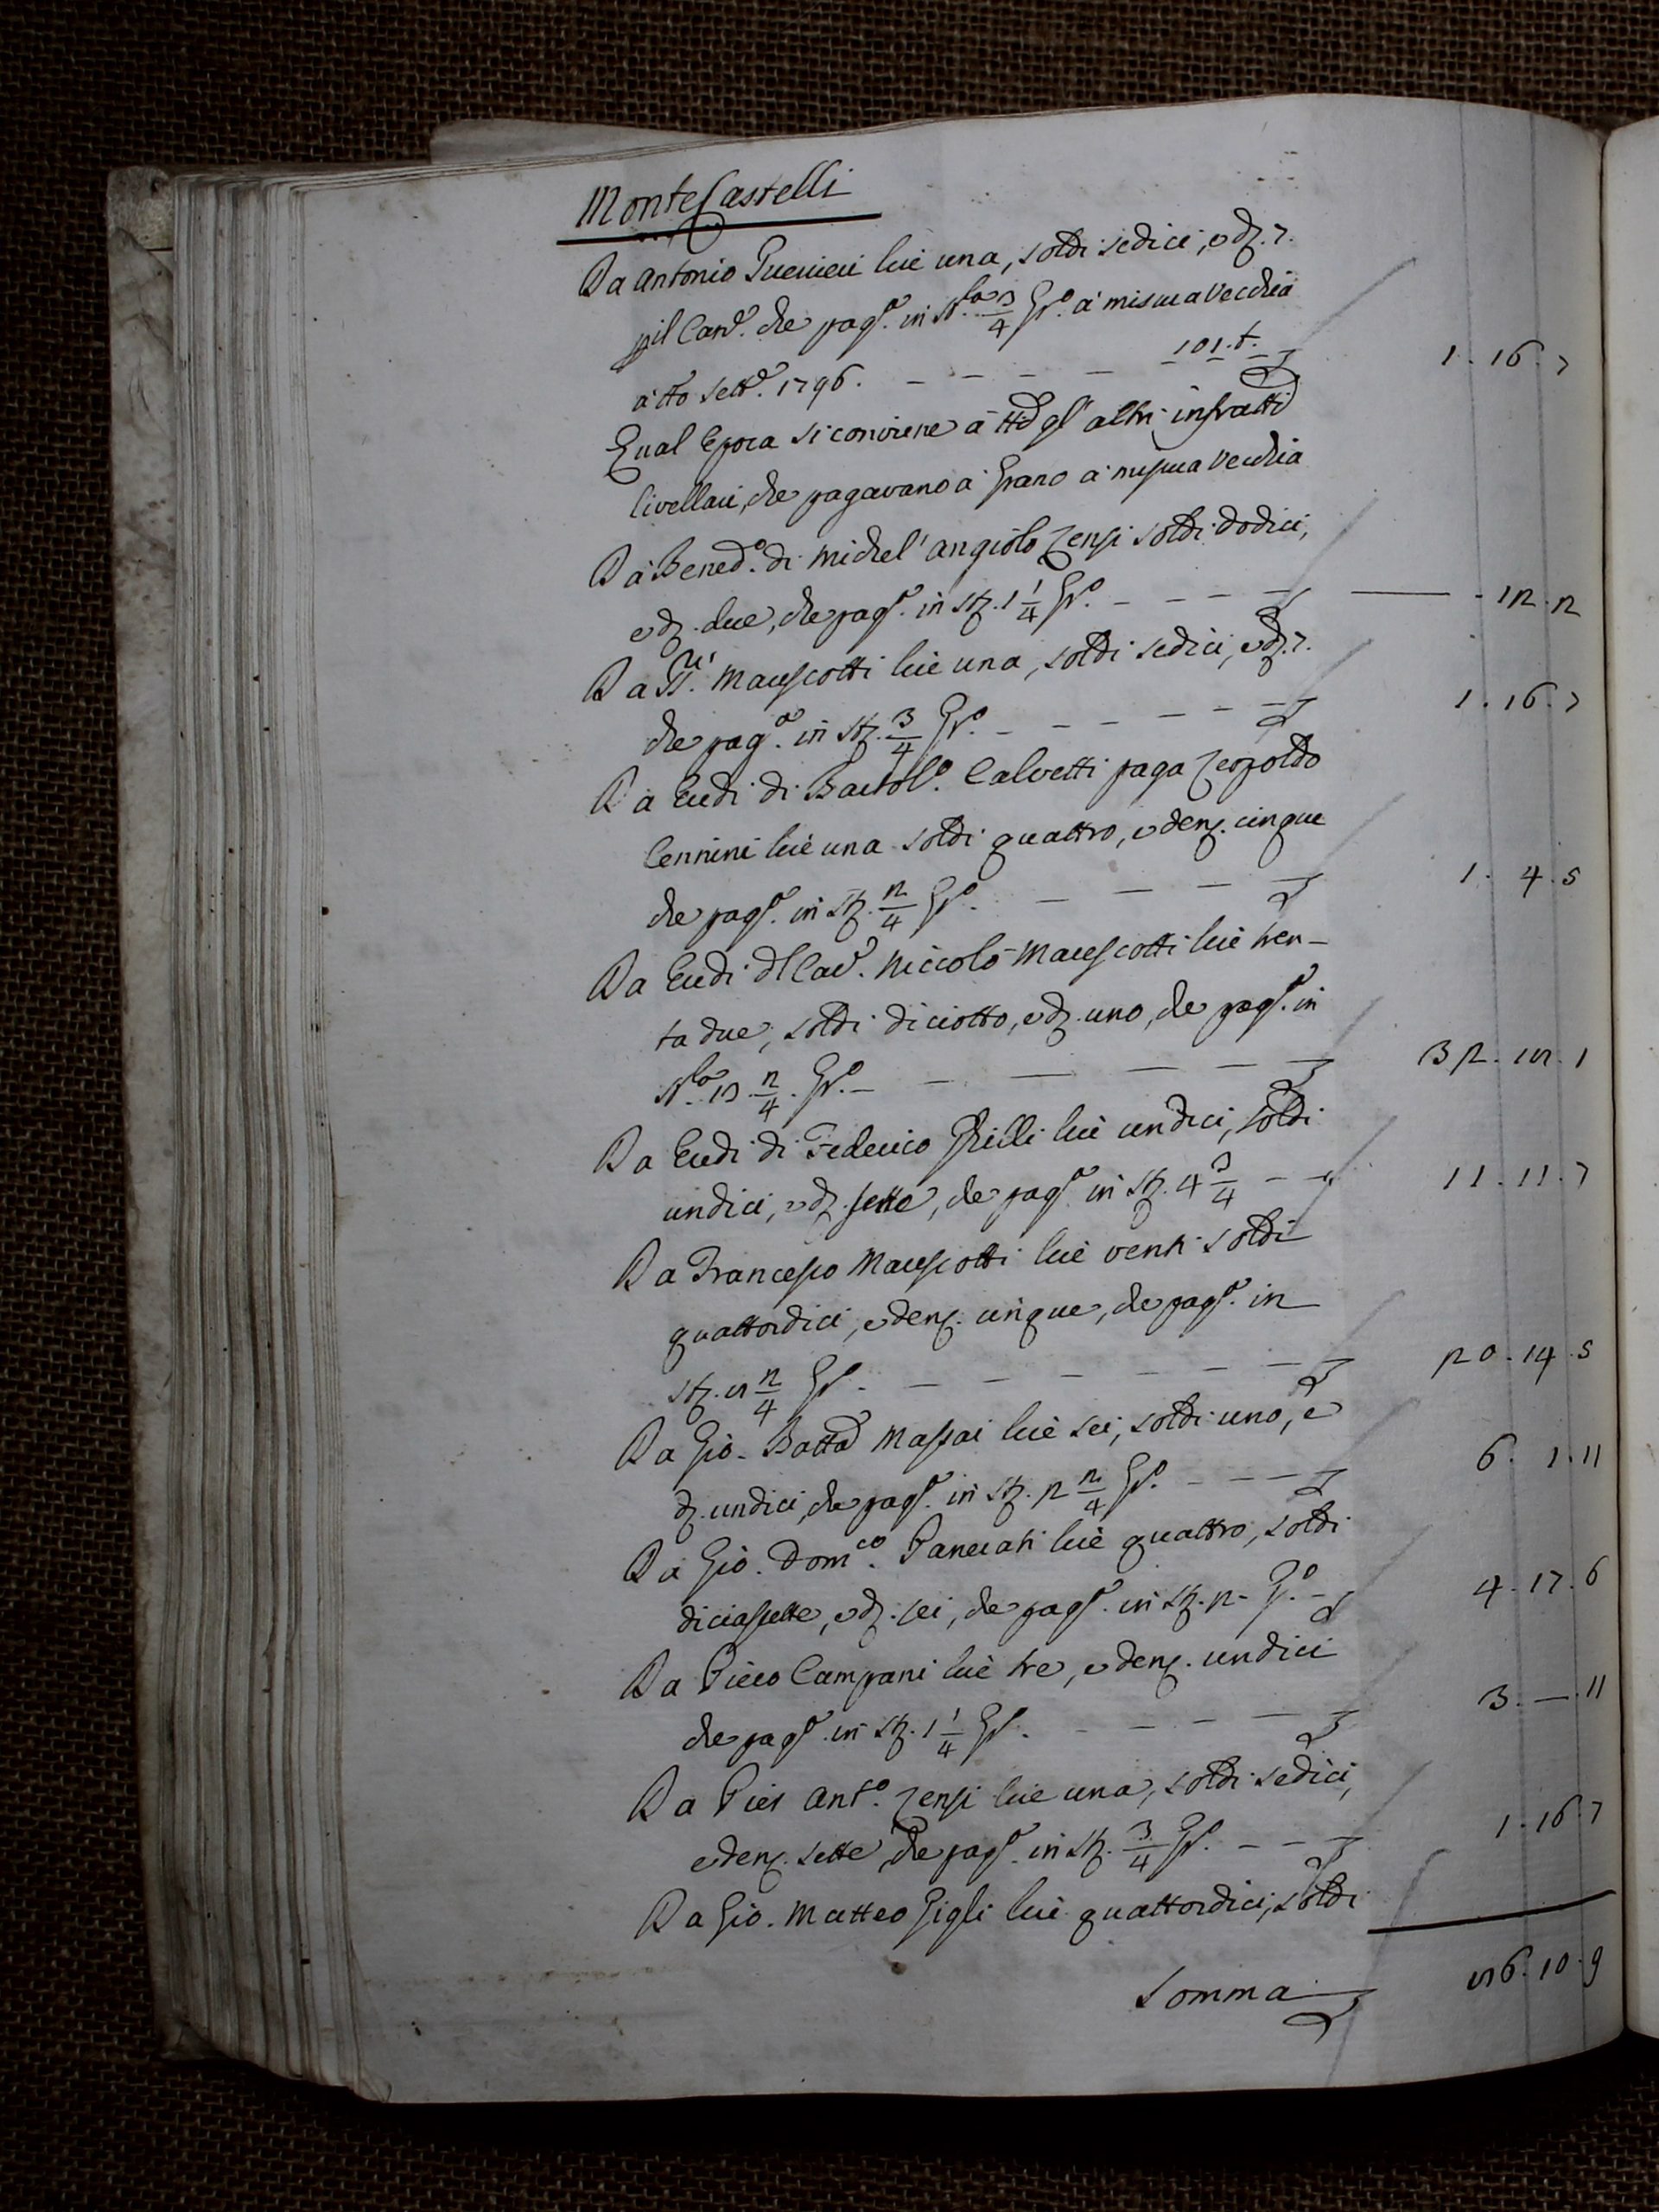 MonteCastelli
Da Antonio Guerrieri lire una, soldi sedici, e dz. 7.
pil Can.e che pag.a in St.a 3/4 Gr.o a' misura Vecchia
a' tto Sett.e 1796. — — — — 101.t.
1. 16. 7
Qual Epoca si conviene a' tti gl' altri infratti
livellari, che pagavano a' Grano a' misura Vecchia
Da Bened.o di Michel' Angiolo Zensi soldi dodici,
e dz. due, che pag.a in stz. 1 1/4 Gr.o — — — —
— 12. 2
Da Marescotti lire una, soldi sedici, e dz. 7.
che pag.a in stz. 3/4 Gr.o — — — — —
1. 16. 7
Da Eredi di Bartol.o Calvetti paga Leopoldo
Cennini lire una soldi quattro, e denz. cinque
che pag.a in stz. 2/4 Gr.o — — — —
1. 4. 5
Da Eredi dl Cav.e Niccolò Marescotti lire tren-
ta due, soldi diciotto, e dz. uno, che pag.a in
St.a 13. 2/4. Gr.o — — — — — —
32. 18. 1
Da Eredi di Federico Grilli lire undici, soldi
undici, e dz. sette, che pag.a in stz. 4 3/4 — —
11. 11. 7
Da Francesco Marescotti lire venti soldi
quattordici, e denz. cinque, che pag.a in
stz. 8 2/4 Gr.o — — — — — — —
20. 14. 5
Da Gio. Batta Massai lire sei, soldi uno, e
dz. undici, che pag.a in stz. 2 2/4 Gr.o — — — —
6. 1. 11
Da Gio. Dom.co Panerati lire quattro, soldi
diciasette, e dz. sei, che pag.a in stz. 2 - Gr.o —
4. 17. 6
Da Piero Campani lire tre, e denz. undici
che pag.a in stz. 1 1/4 Gr.o — — — — —
3. —. 11
Da Pier Ant.o Zensi lire una, soldi sedici,
e denz. sette, che pag.a in stz. 3/4 Gr.o — — —
1. 16. 7
Da Gio. Matteo Gigli lire quattordici, soldi
Somma
86. 10. 9